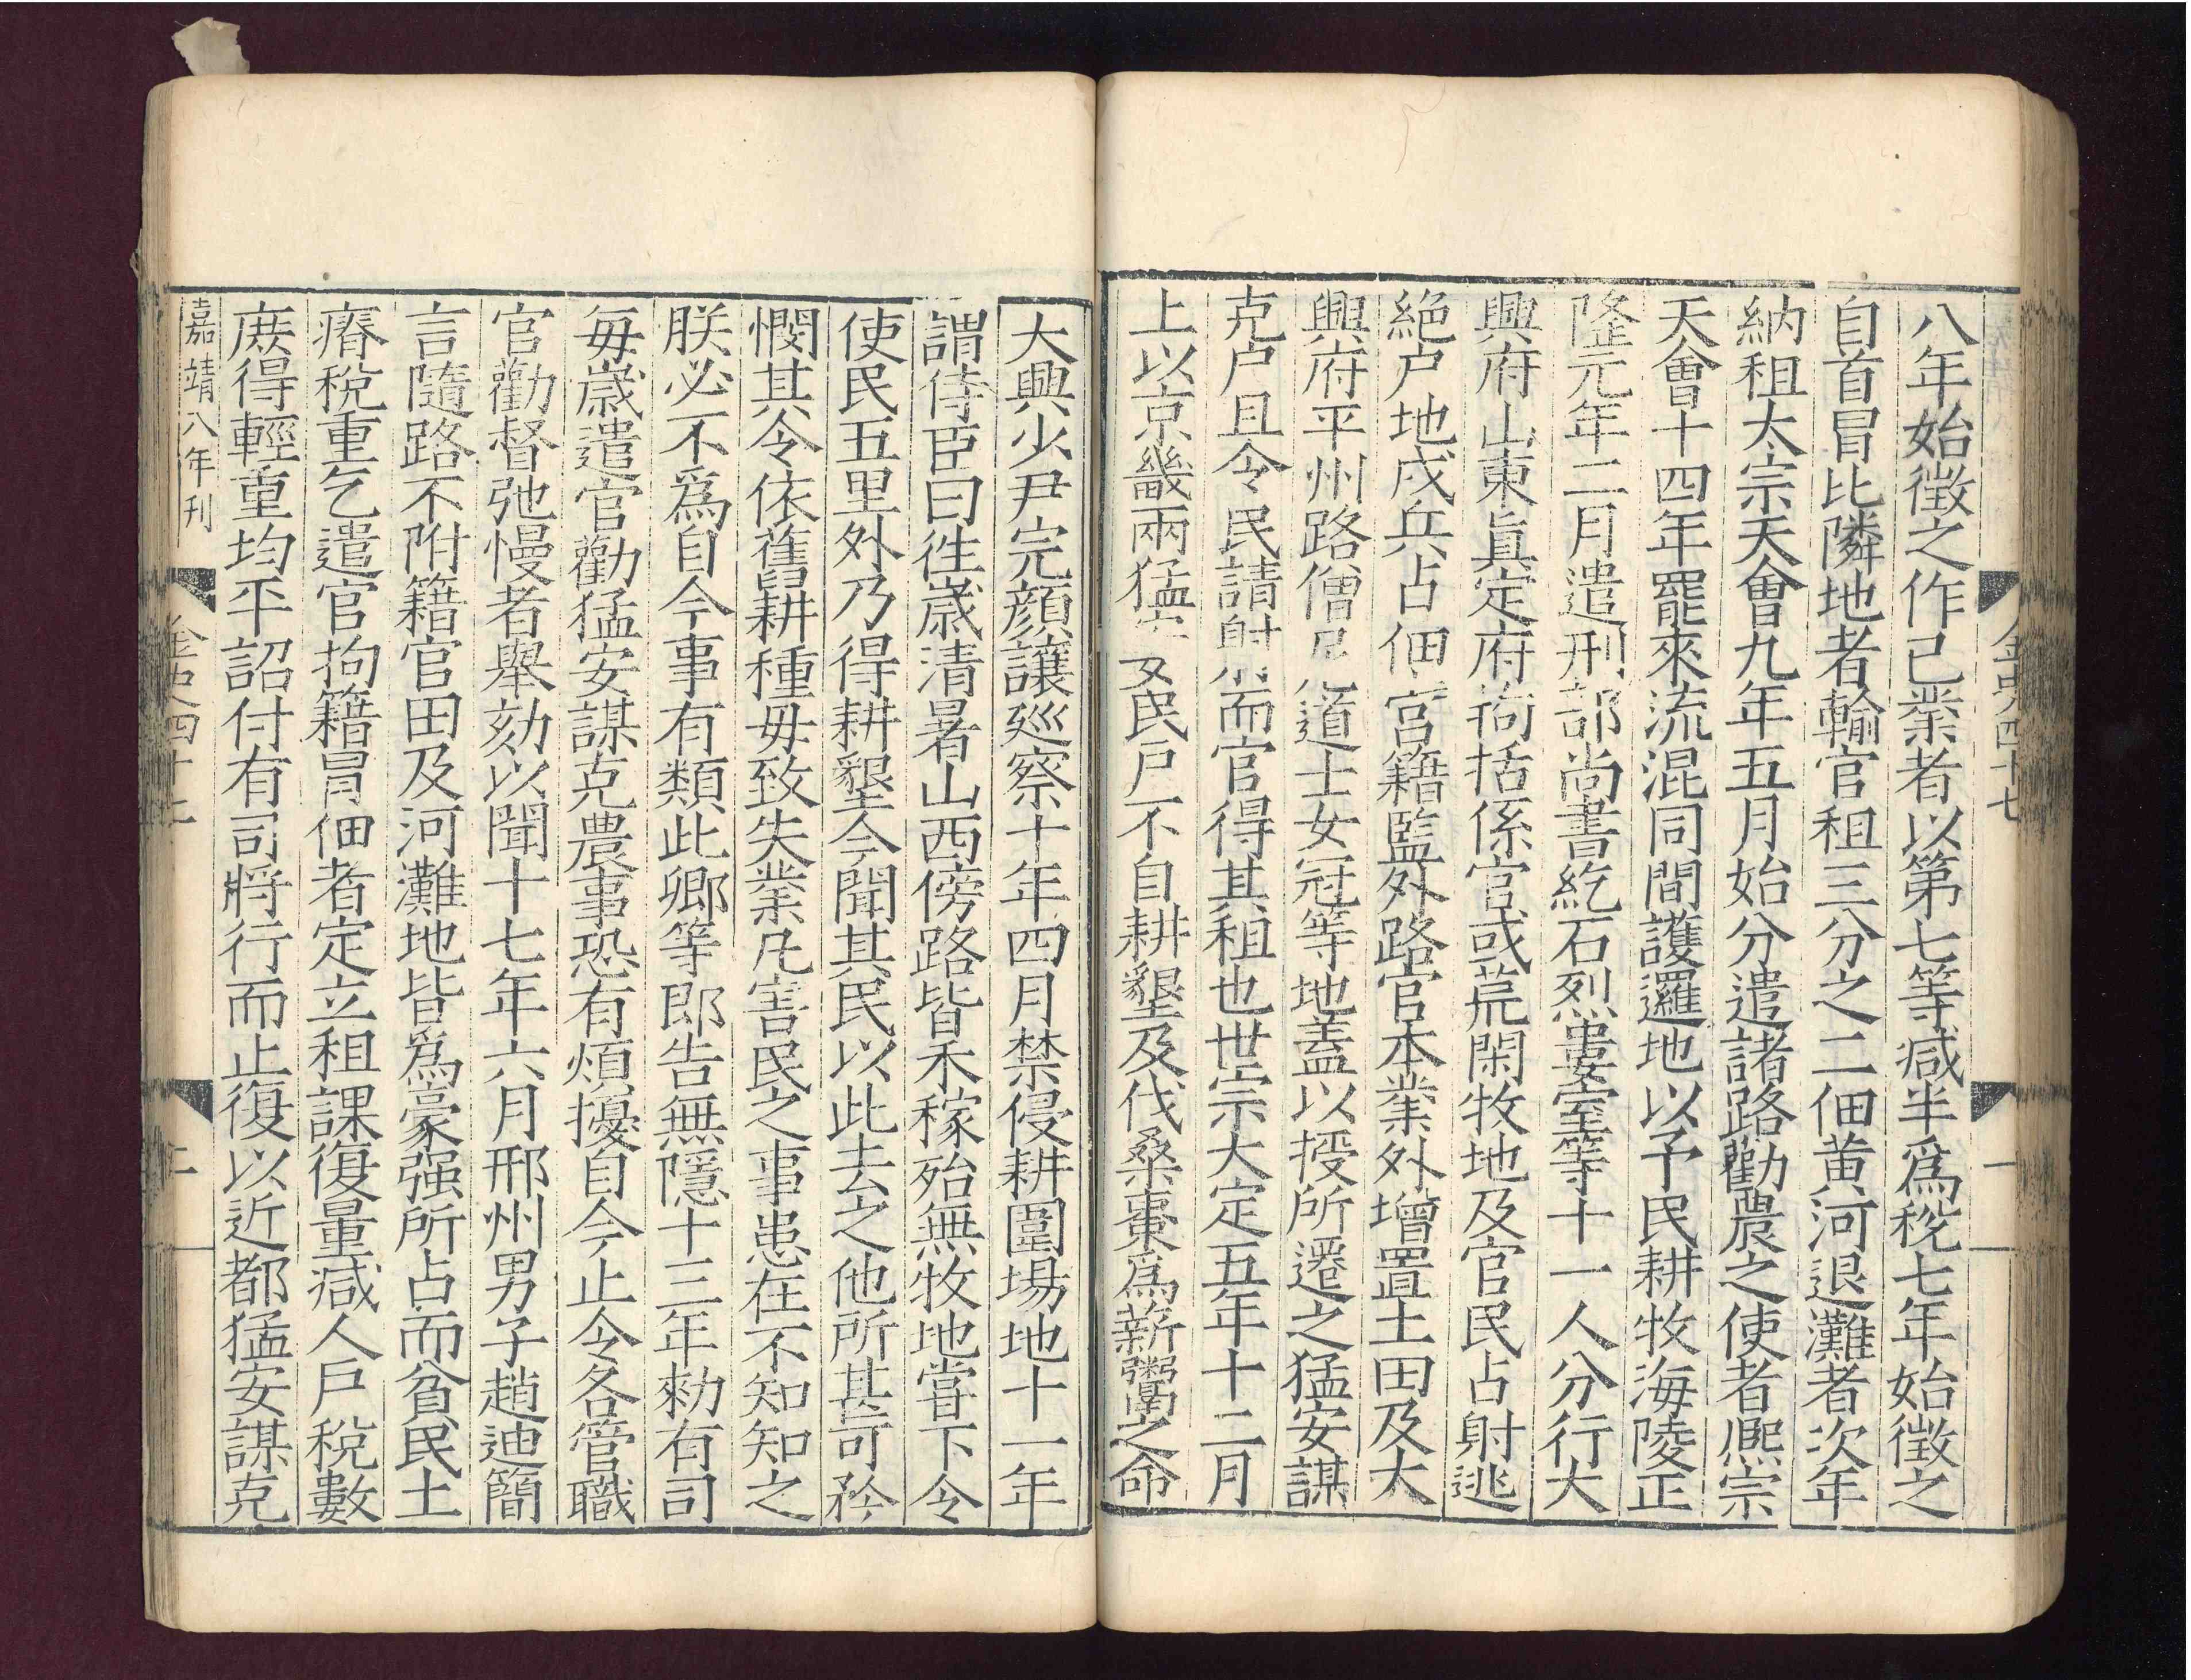 金史四十七
一
八年始徵之作已業者以第七等减半爲稅七年始徵之
自首冒比隣地者輸官租三分之二佃黄河退灘者次年
納租太宗天會九年五月始分遣諸路勸農之使者熈宗
天會十四年罷來流混同間護邏地以予民耕牧海陵正
隆元年二月遣刑部尚書紇石烈婁室等十一人分行大
興府山東真定府拘括係官或荒閑牧地及官民占射逃
絶户地戍兵占佃宫籍監外路官本業外增置土田及大
興府平州路僧尼道士女冠等地盖以授所遷之猛安謀
克户且令民請射而官得其租也世宗大定五年十二月
上以京畿兩猛安民戸不自耕墾及伐桑棗爲薪鬻之命
大興少尹完顔讓廵察十年四月禁侵耕圍場地十一年
謂侍臣曰徃嵗清暑山西傍路皆禾稼殆無牧地嘗下令
使民五里外乃得耕墾今聞其民以此去之他所甚可矜
憫其令依舊耕種毋致失業凡害民之事患在不知知之
朕必不爲自今事有類此卿等即告無隱十三年勑有司
毎嵗遣官勸猛安謀克農事恐有煩擾自今止令各管職
官勸督弛慢者舉劾以聞十七年六月邢州男子趙迪簡
言隨路不附籍官田及河灘地皆爲豪强所占而貧民土
瘠稅重乞遣官拘籍冒佃者定立租課復量减人戸稅數
庻得輕重均平詔付有司將行而止復以近都猛安謀克
嘉靖八年刊
金史四十七
二